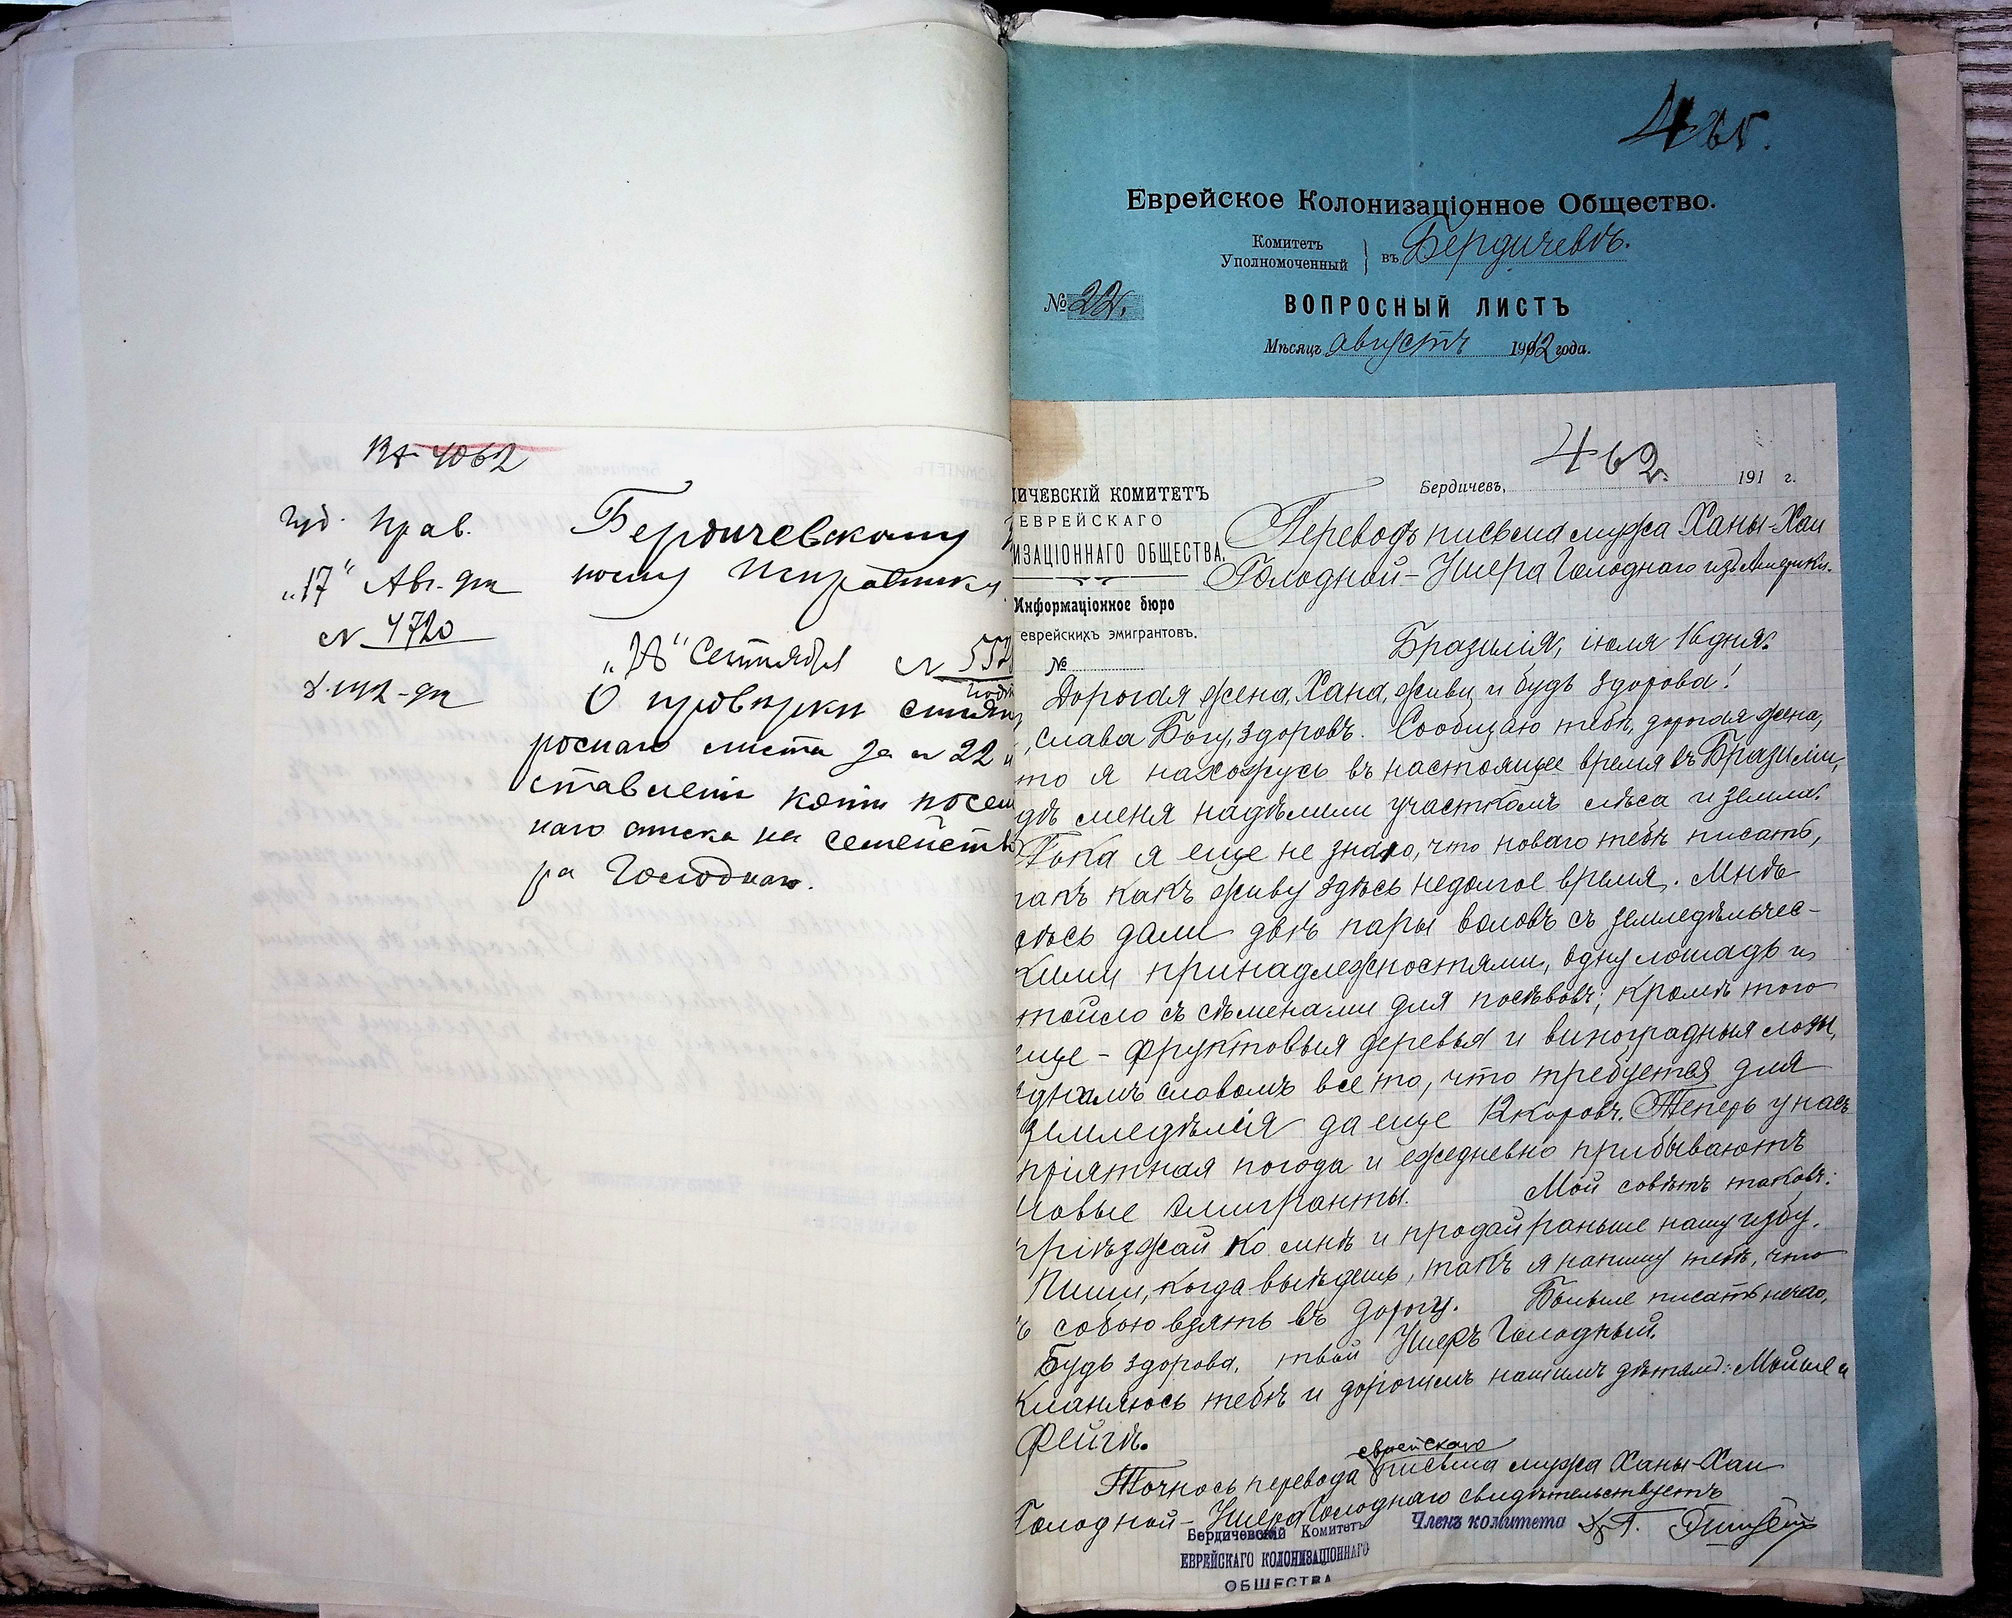 4062
Губ. Прав.
„17“ Авг. дня
№ 4720
Бердичевскому
ному Исправнику
„18“ Сентября № 557
О провѣрки
роснаго листа за № 22 и
ставлении копіи посем
наго списка на семейств
ра Голоднаго.
Еврейское Колонизаціонное Общество.
Комитетъ
Уполномоченный
въ Бердичевѣ.
№ 22.
ВОПРОСНЫЙ ЛИСТЪ
Мѣсяцъ августъ 1912 года.
462
Бердичев, 191 г.
ДИЧЕВСКІЙ КОМИТЕТЪ
ЕВРЕЙСКАГО
ИЗАЦІОННАГО ОБЩЕСТВА.
Информаціонное бюро
еврейскихъ эмигрантовъ.
№
Переводъ письма мужа Ханы-Хаи
Голодной – Ушера Голоднаго изъ Америки.
Бразилія, іюля 16 дня.
Дорогая жена, Хана, живи и будь здорова!
, слава Богу, здоровъ. Сообщаю тебѣ, дорогая жена,
то я нахожусь въ настоящее время въ Бразиліи,
гдѣ меня надѣлили участкомъ лѣса и земли.
Пока я еще не знаю, что новаго тебѣ писать,
такъ какъ живу здѣсь недолгое время. Мнѣ
здѣсь дали двѣ пары воловъ съ земледѣльчес-
кими принадлежностями, одну лошадь и
тойло съ сѣменами для посѣвовъ; кромѣ того
еще – фруктовыя деревья и виноградныя лозы,
однимъ словомъ все то, что требуется для
земледѣлія да еще 12 коровъ. Теперь у насъ
пріятная погода и ежедневно прибываютъ
новые эмигранты. Мой совѣтъ таковъ:
пріѣзжай ко мнѣ и продай раньше нашу избу.
Пиши, когда выѣдешь, такъ я напишу тебѣ, что
ъ собою взять въ дорогу. Больше писать нечего,
Будь здорова, твой Ушеръ Голодный.
Кланяюсь тебѣ и дорогимъ нашимъ дѣтямъ: Мойше и
Фейгѣ.
Точнось перевода еврейскаго письма мужа Ханы-Хаи
Голодной – Ушера Голоднаго свидѣтельствуетъ
Бердичевскій Комитетъ
ЕВРЕЙСКАГО КОЛОНИЗАЦІОННАГО
ОБЩЕСТВА
Членъ комитета